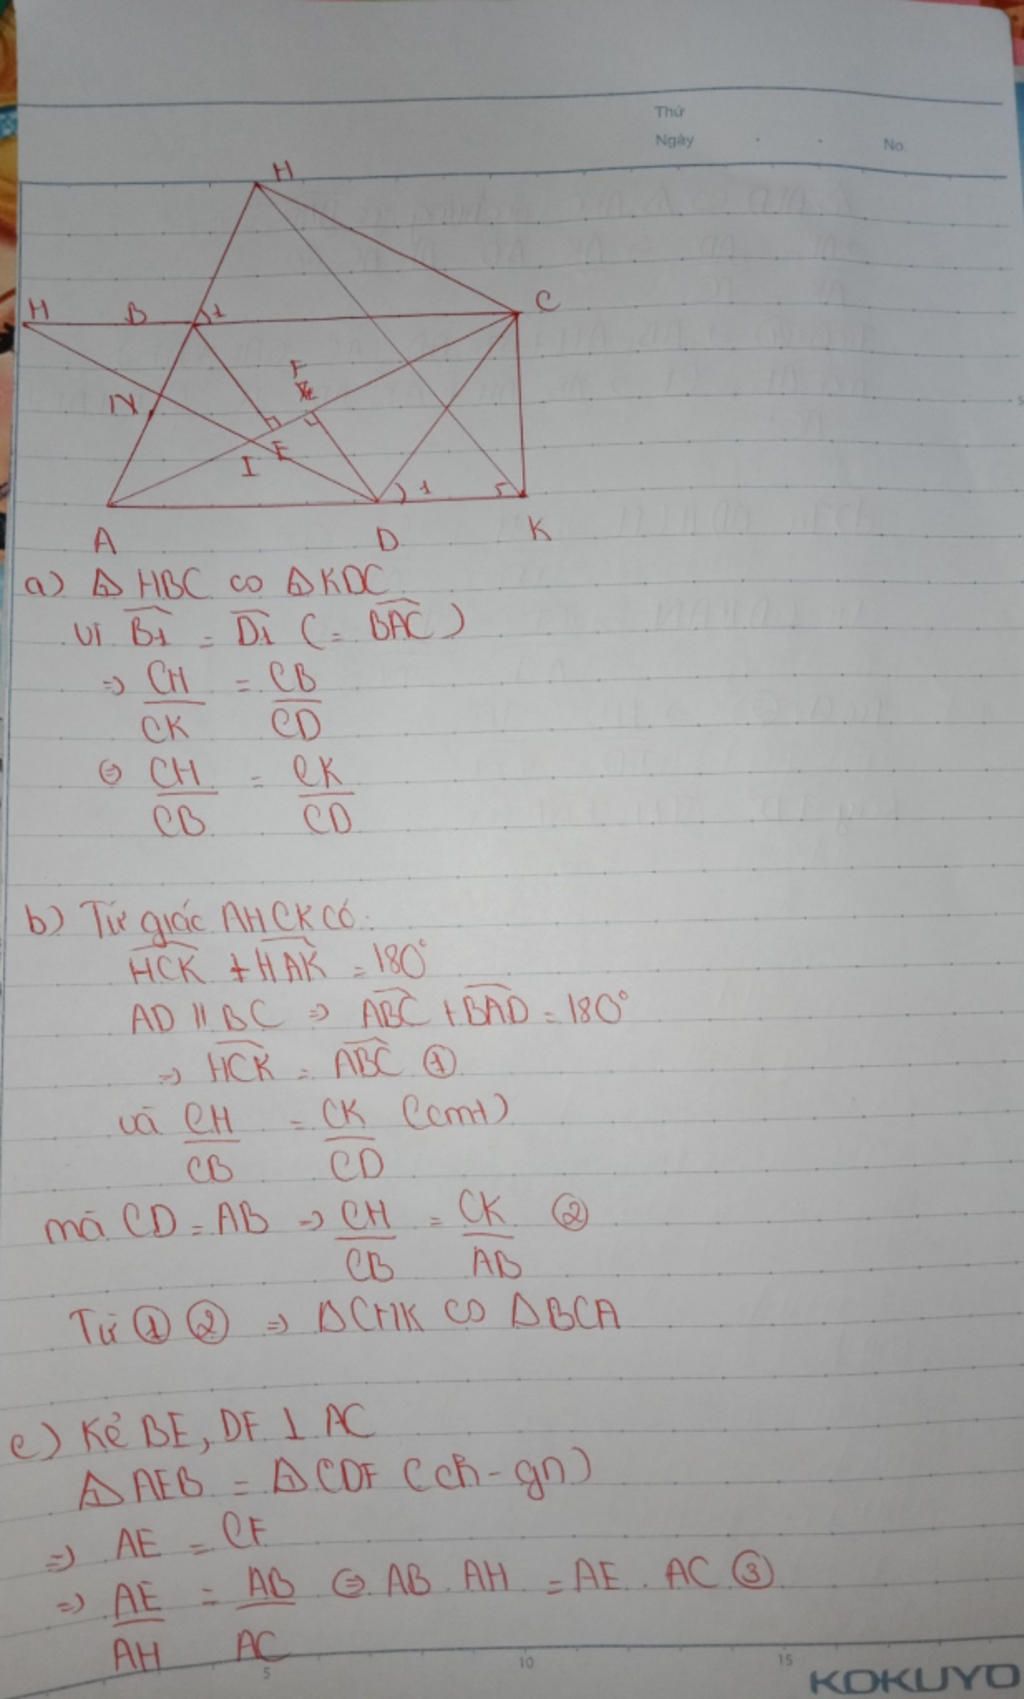 Thứ
Ngày . . No.
H
H B 1 C
N F
I E
1
A D K
a) Δ HBC ∽ Δ KDC
Vì B1 = D1 (= BAC)
=> CH/CK = CB/CD
⇔ CH/CB = CK/CD
b) Tứ giác AHCK có:
HCK + HAK = 180°
AD // BC => ABC + BAD = 180°
=> HCK = ABC ①
và CH/CB = CK/CD (cmt)
mà CD = AB => CH/CB = CK/AB ②
Từ ① ② => ΔCHK ∽ ΔBCA
c) Kẻ BE, DF ⊥ AC
Δ AEB = Δ CDF (ch - gn)
=> AE = CF
=> AE/AH = AB/AC ⇔ AB . AH = AE . AC ③
5 10 15
KOKUYO